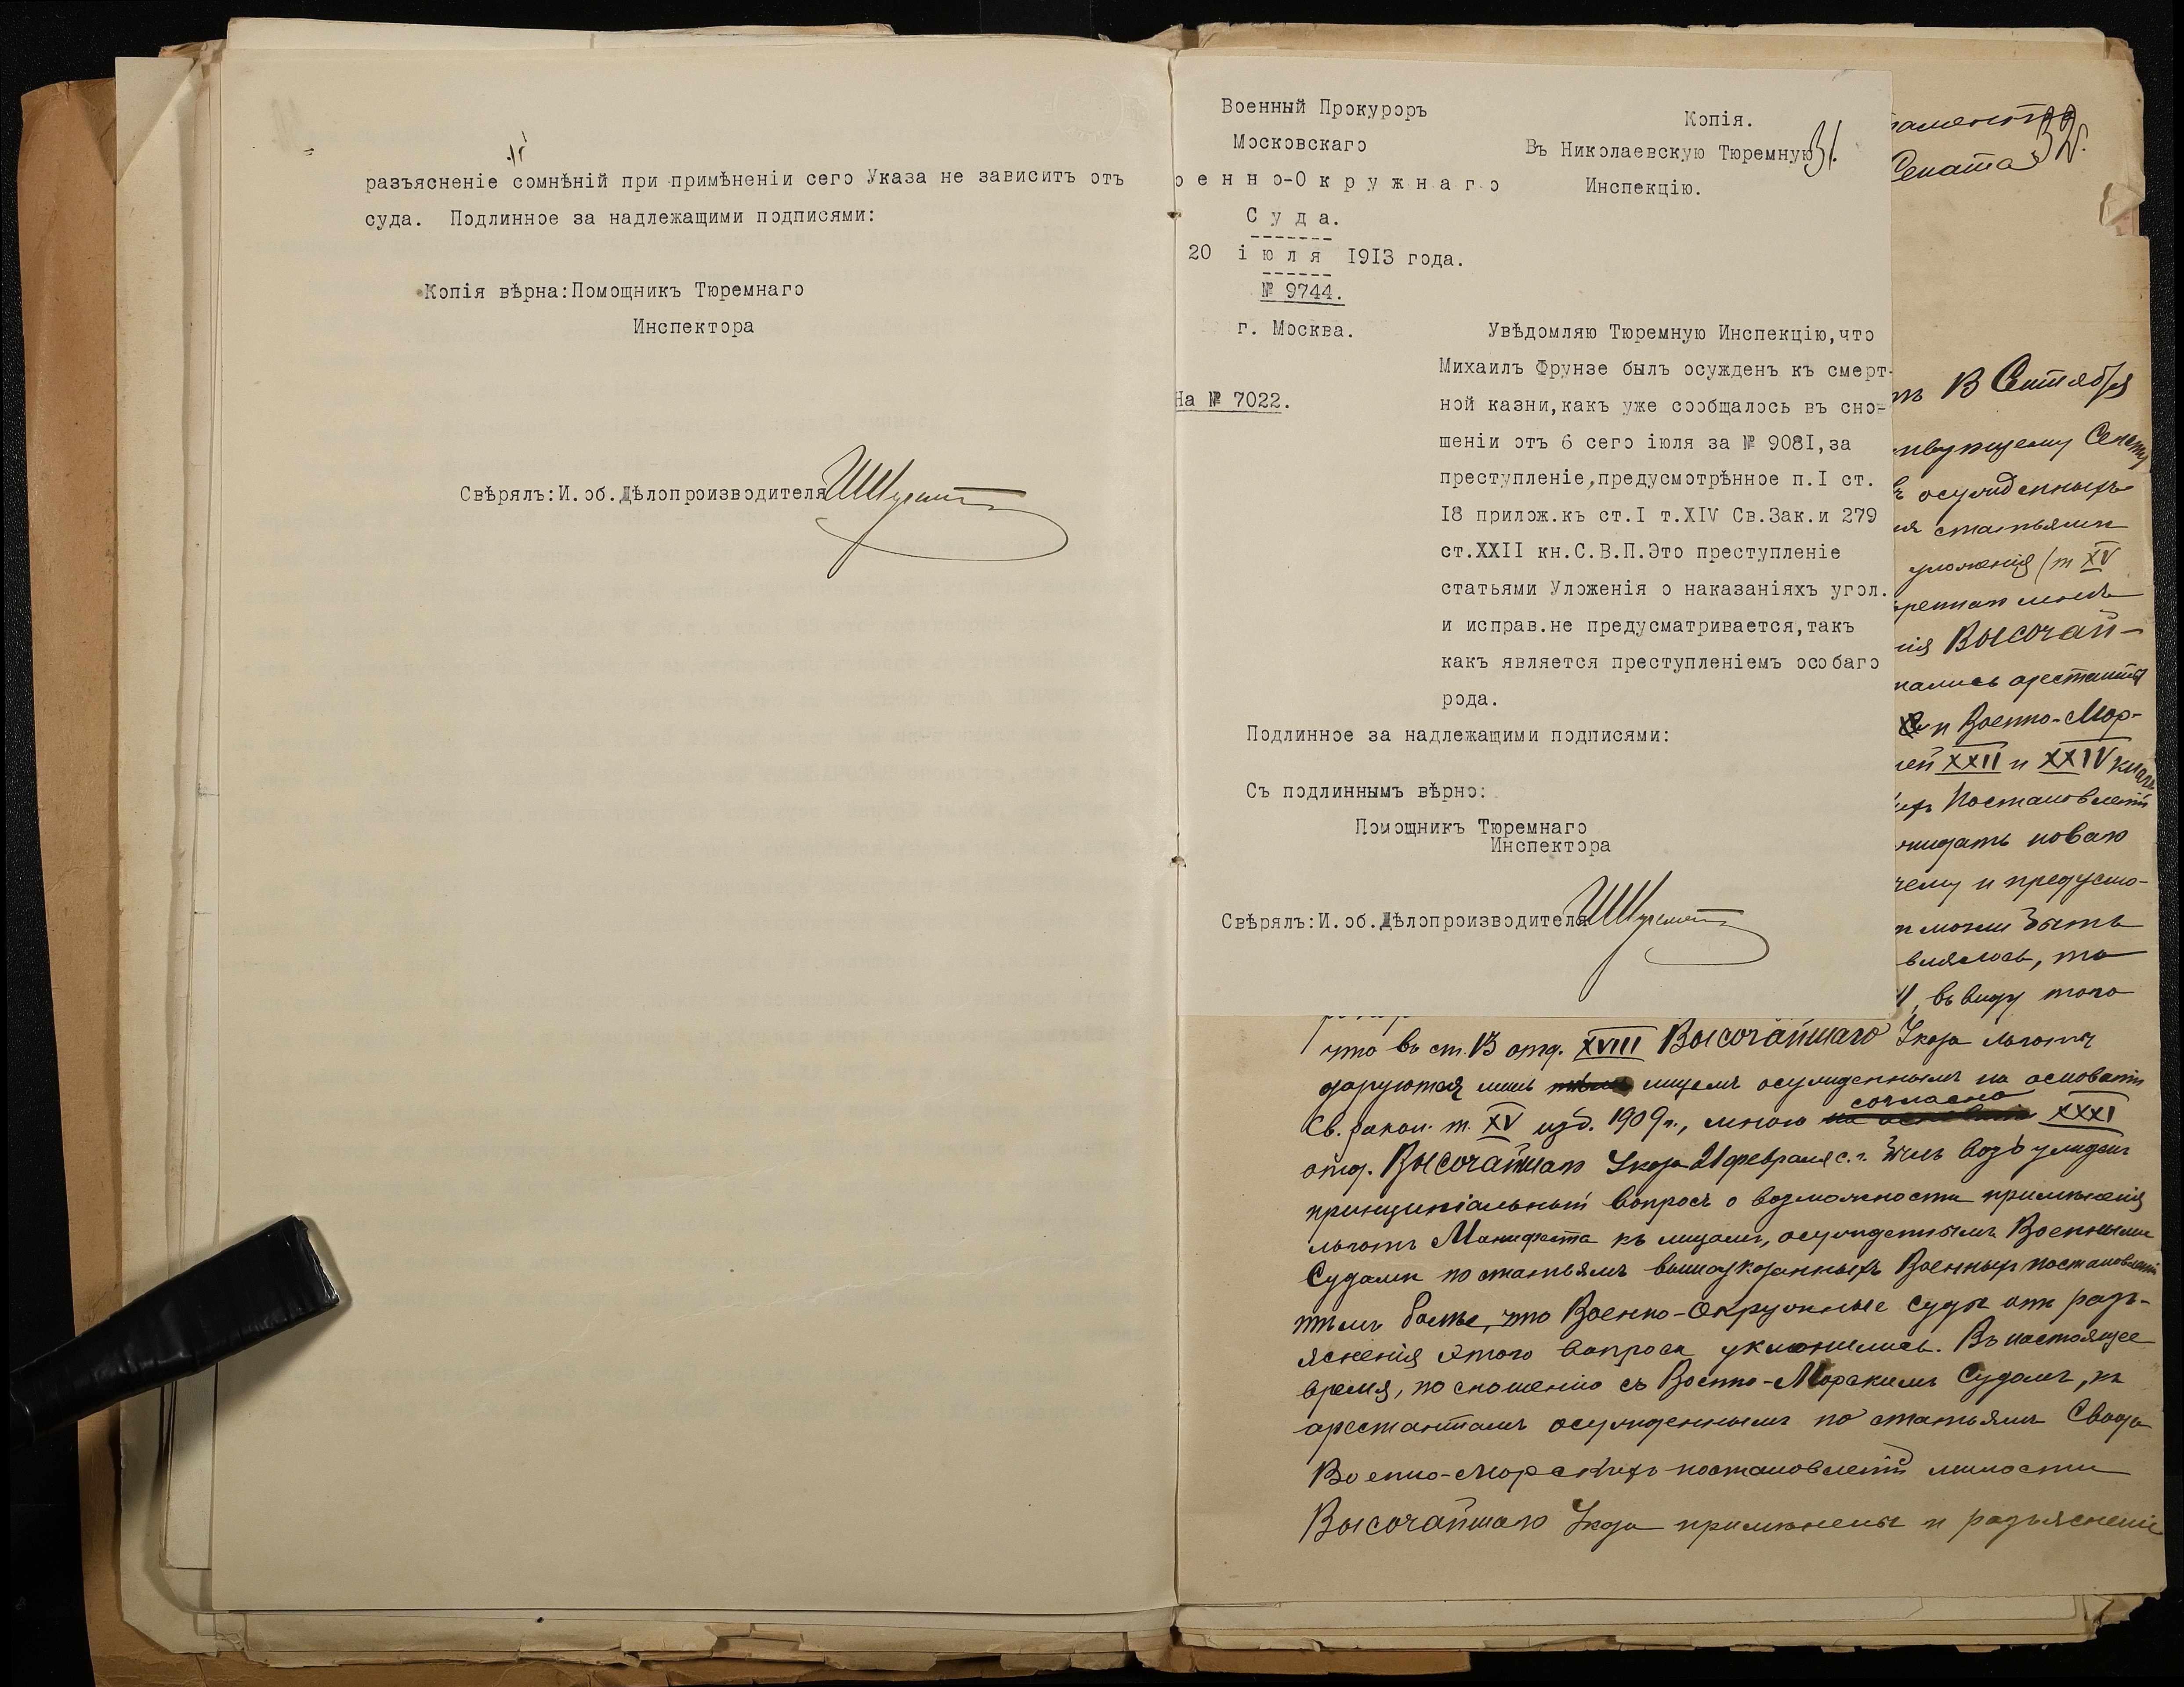 разъясненіе сомнѣній при примѣненіи сего Указа не зависитъ отъ
суда. Подлинное за надлежащими подписями:
Копія вѣрна:Помощникъ Тюремнаго
Инспектора
Свѣрялъ:И.об.Дѣлопроизводителя
Военный Прокуроръ
Московскаго
оенно-Окружнаго
Суда.
20 іюля 1913 года.
№ 9744.
г. Москва.
На № 7022.
Копія.
31.
Въ Николаевскую Тюремную
Инспекцію.
Увѣдомляю Тюремную Инспекцію,что
Михаилъ Фрунзе былъ осужденъ къ смерт-
ной казни,какъ уже сообщалось въ сно-
шеніи отъ 6 сего іюля за № 9081,за
преступленіе,предусмотрѣнное п.I ст.
18 прилож.къ ст.I т.XIV Св.Зак.и 279
ст.XXII кн.С.В.П.Это преступленіе
статьями Уложенія о наказаніяхъ угол.
и исправ.не предусматривается,такъ
какъ является преступленіемъ особаго
рода.
Подлинное за надлежащими подписями:
Съ подлиннымъ вѣрно:
Помощникъ Тюремнаго
Инспектора
Свѣрялъ:И.об.Дѣлопроизводителя
32.
Сената
В Сентября
осужденныхъ
статьями
уложенія (т XV
Высочай-
арестанты
и Военно-Мор-
XXII и XXIV книгъ
Постановленій
новаго
и предусмо-
могли быть
влялось, то
въ виду того
что въ ст. В отд. XVIII Высочайшаго Указа льготы
даруются лишь лицамъ осужденнымъ на основаніи
Св. закон. т. XV изд. 1909г., мною согласно XXXI
отд. Высочайшаго Указа 21 февраля с.г. былъ возбужденъ
принципіальный вопросъ о возможности примѣненія
льготъ Манифеста къ лицамъ, осужденнымъ Военными
Судами по статьямъ вышеуказанныхъ Военныхъ постановленій
тѣмъ болѣе, что Военно-Окружные суды отъ разъ-
ясненія этого вопроса уклонились. Въ настоящее
время, по сношенію съ Военно-Морскимъ Судомъ, къ
арестантамъ осужденнымъ по статьямъ Свода
Военно-Морскихъ постановленій милости
Высочайшаго Указа примѣнены и разъясненіе